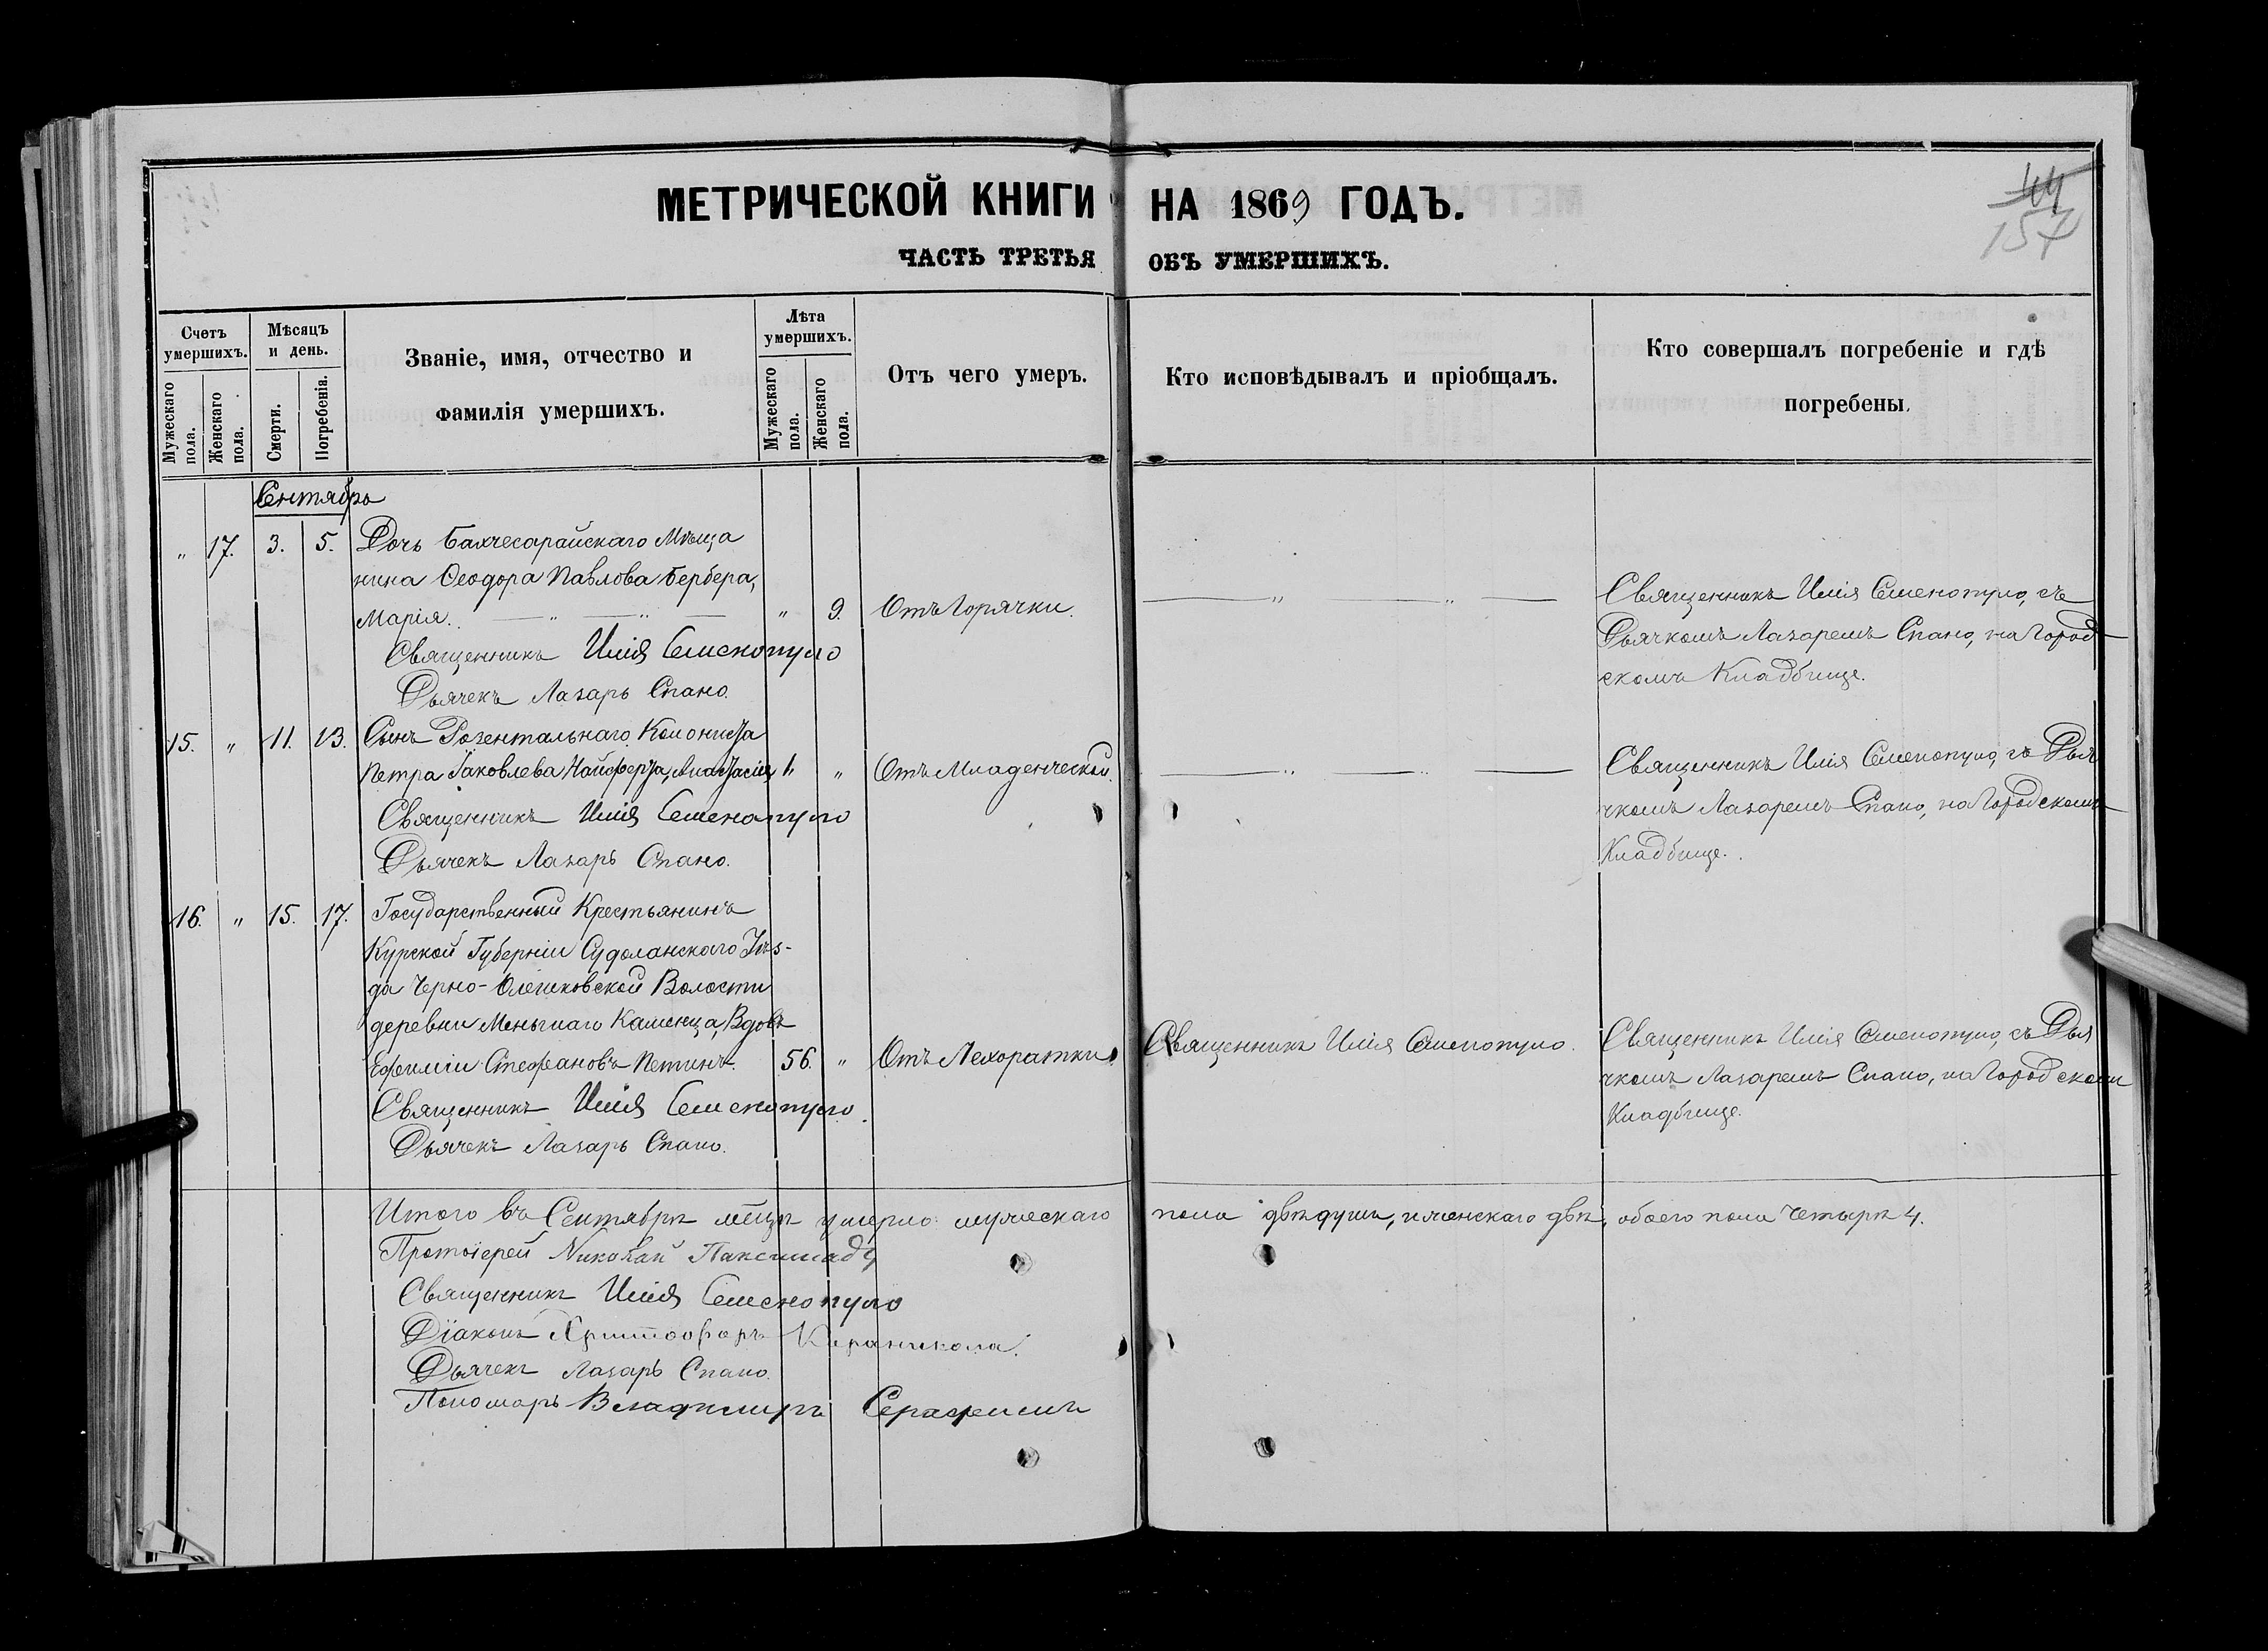 МЕТРИЧЕСКОЙ КНИГИ НА 1869 ГОДЪ.
44
157
ЧАСТЬ ТРЕТЬЯ ОБЪ УМЕРШИХЪ.
Счетъ умершихъ.
Мужескаго пола.
Женскаго пола.
Мѣсяцъ и день.
Смерти.
Погребенія.
Званіе, имя, отчество и
фамилія умершихъ.
Лѣта умершихъ.
Мужескаго пола.
Женскаго пола.
Отъ чего умеръ.
Кто исповѣдывалъ и пріобщалъ.
Кто совершалъ погребеніе и гдѣ
погребены.
Сентябрь
" 17. 3. 5. Дочь Бахчесарайскаго Мѣща
нина Ѳеодора Павлова Бербера,
Марія. " 9. Отъ Горячки.
Священникъ Илія Семенопуло
Дьячекъ Лазарь Спано.
Священникъ Илія Семенопуло, съ
Дьячкомъ Лазаремъ Спано, на Город
скомъ Кладбище.
15. " 11. 13. Сынъ Розентальнаго Колониста
Петра Іаковлева 1. " Отъ Младенческой.
Священникъ Илія Семенопуло
Дьячекъ Лазарь Спано.
Священникъ Илія Семенопуло, съ Дья
чкомъ Лазаремъ Спано, на Городскомъ
Кладбище.
16. " 15. 17. Государственный Крестьянинъ
Курской Губерніи Суджанскаго Уѣз-
да Черно-Олешковской Волости
деревни Меньшаго Каменца, Вдовъ
Ефимій Стефановъ Петинъ. 56. " Отъ Лехорадки.
Священникъ Илія Семенопуло.
Дьячекъ Лазарь Спано.
Священникъ Илія Семенопуло.
Священникъ Илія Семенопуло, съ Дья
чкомъ Лазаремъ Спано, на Городскомъ
Кладбище.
Итого въ Сентябрѣ мѣцѣ умерло мужескаго пола двѣ души, женскаго двѣ, обоего пола четырѣ 4.
Протоіерей Николай Паксимадъ
Священникъ Илія Семенопуло
Діаконъ Христофоръ Караникола.
Дьячекъ Лазарь Спано.
Пономарь Владимиръ Серафимъ